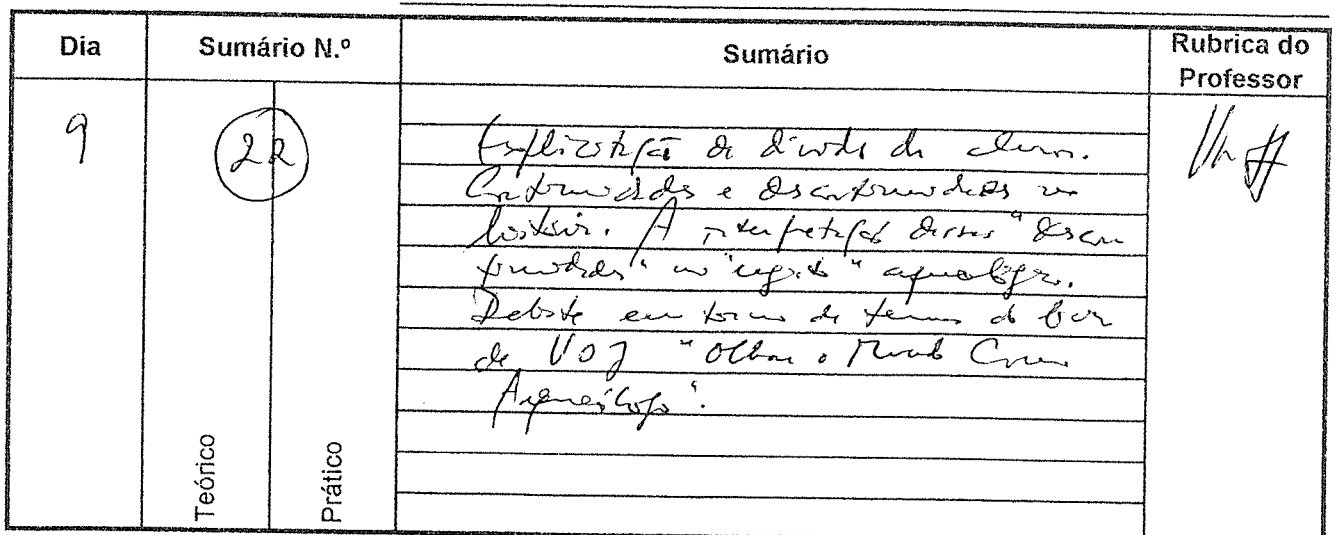 Dia Sumário N.º Sumário Rubrica do Professor
9 22
Explicitação de dúvidas de alunos.
Continuidades e descontinuidades na
história. A interpretação dessas "descon
tinuidades" no "registo" arqueológico.
Debate em torno de temas do livro
de VOJ "Olhar o Mundo Como
Arqueólogo".
Teórico
Prático